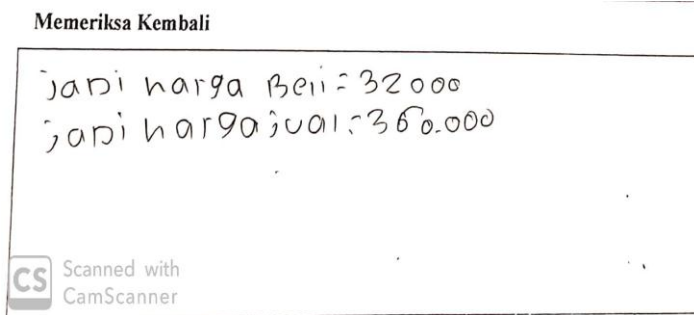 Memeriksa Kembali
jadi harga Beli = 32000
jadi harga jual = 360.000
CS Scanned with
CamScanner